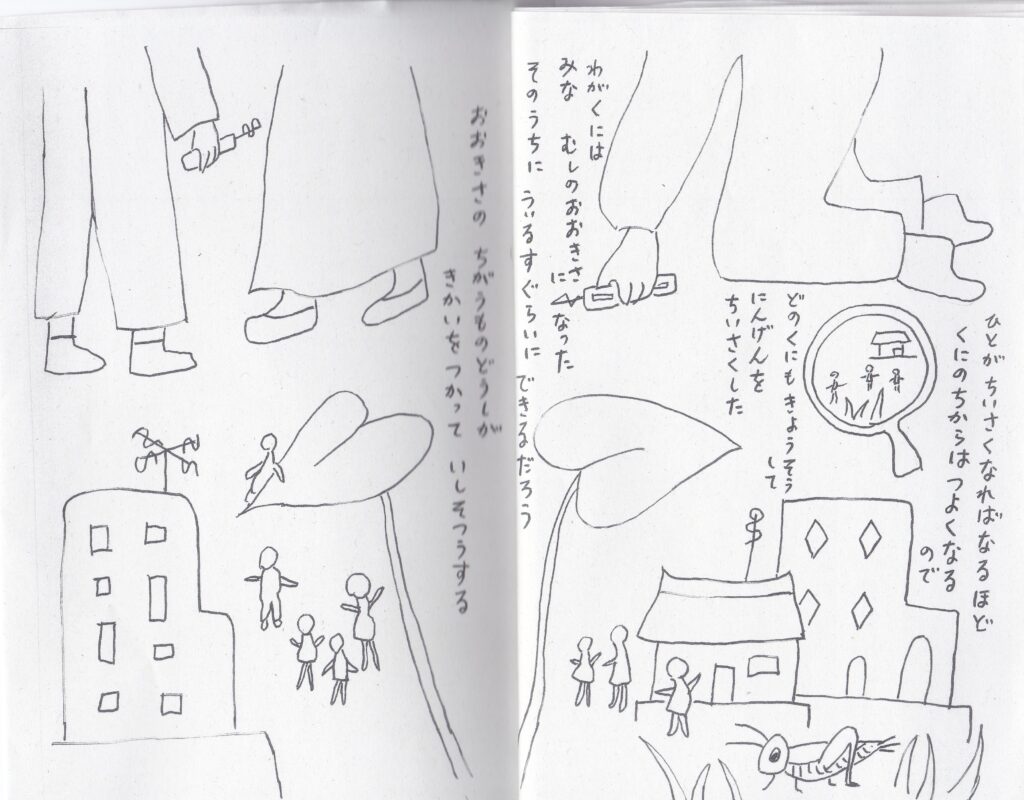 ひとが ちいさくなればなるほど
くにのちからは つよくなる
ので
どのくにもきょうそう
して
にんげんを
ちいさくした
わがくには
みな むしのおおきさ
に なった
そのうちに ういるすぐらいに できるだろう
おおきさの ちがうものどうしが
きかいを つかって いしそつうする